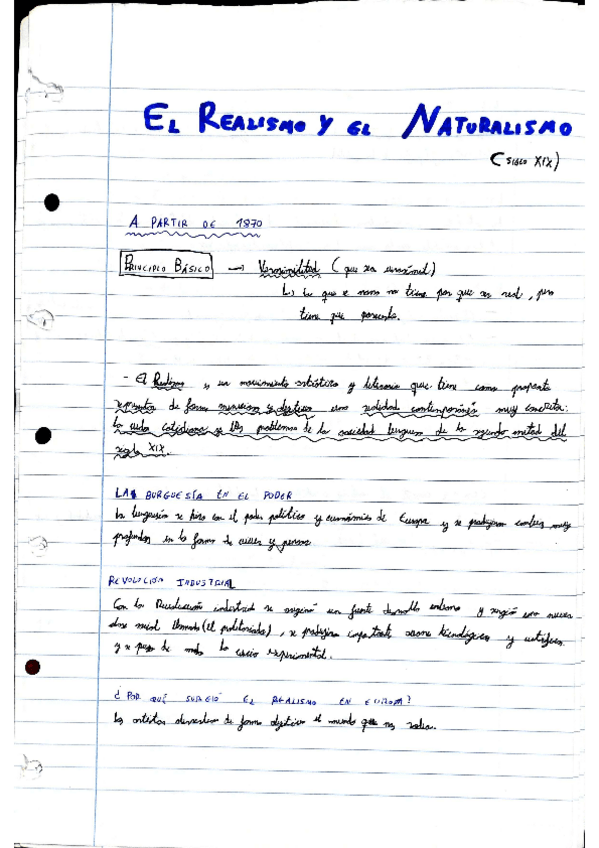 EL REALISMO Y EL NATURALISMO
(SIGLO XIX)
A PARTIR DE 1870
PRINCIPIO BÁSICO → Verosimilitud (que sea verosímil)
↳ lo que se narra no tiene por que ser real, pero
tiene que parecerlo.
- El Realismo es un movimiento artístico y literario que tiene como proposito
representar de forma minuciosa y objetiva una realidad contemporánea muy concreta:
la vida cotidiana y los problemas de la sociedad burguesa de la segunda mitad del
siglo XIX.
LA BURGUESÍA EN EL PODER
La burguesía se hizo con el poder político y económico de Europa y se produjeron cambios muy
profundos en la forma de vivir y pensar.
REVOLUCIÓN INDUSTRIAL
Con la Revolución industrial se originó un fuerte desarrollo urbano y surgió una nueva
clase social llamada (el proletariado), se produjeron importantes avances tecnológicos y científicos
y se puso de moda la ciencia experimental.
¿POR QUÉ SURGIÓ EL REALISMO EN EUROPA?
Los artistas de forma objetiva el mundo que nos rodea.